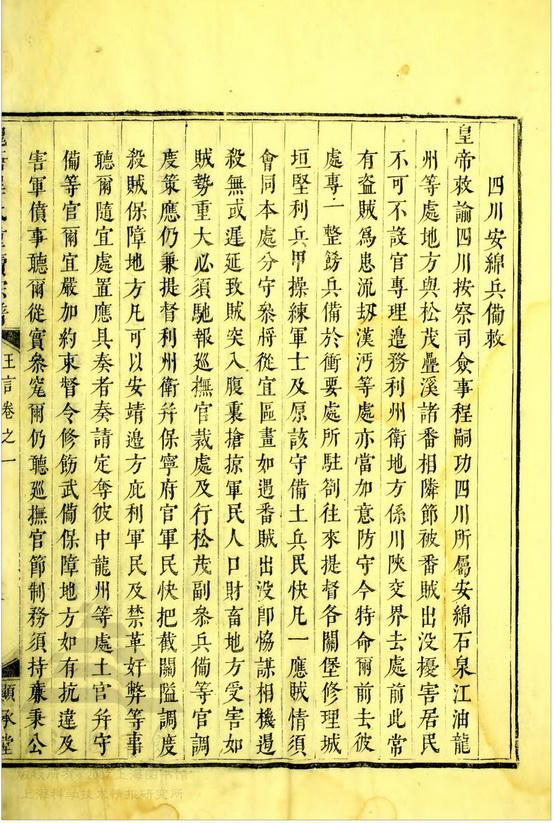 四川安綿兵備敕
皇帝敕諭四川按察司僉事程嗣功四川所屬安綿石泉江油龍
州等處地方與松茂疊溪諸番相隣節被番賊出没擾害居民
不可不設官專理邉務利州衛地方係川陝交界去處前此常
有盗賊爲患流刼漢沔等處亦當加意防守今特命爾前去彼
處專一整飭兵備於衝要處所駐劄往來提督各關堡修理城
垣堅利兵甲操練軍士及原該守備土兵民快凡一應賊情須
會同本處分守叅將從宜區畫如遇番賊出没卽恊謀相機邉
殺無或遲延致賊突入腹裏搶掠軍民人口財畜地方受害如
賊勢重大必須馳報廵撫官裁處及行松茂副叅兵備等官調
度策應仍兼提督利州衛并保寧府官軍民快把截關隘調度
殺賊保障地方凡可以安靖邉方庇利軍民及禁革奸弊等事
聽爾隨宜處置應具奏者奏請定奪彼中龍州等處土官并守
備等官爾宜嚴加約束督令修飭武備保障地方如有抗違及
害軍僨事聽爾從實叅究爾仍聽廵撫官節制務須持亷秉公
王言卷之一
順承堂
上海科学技术情报研究所